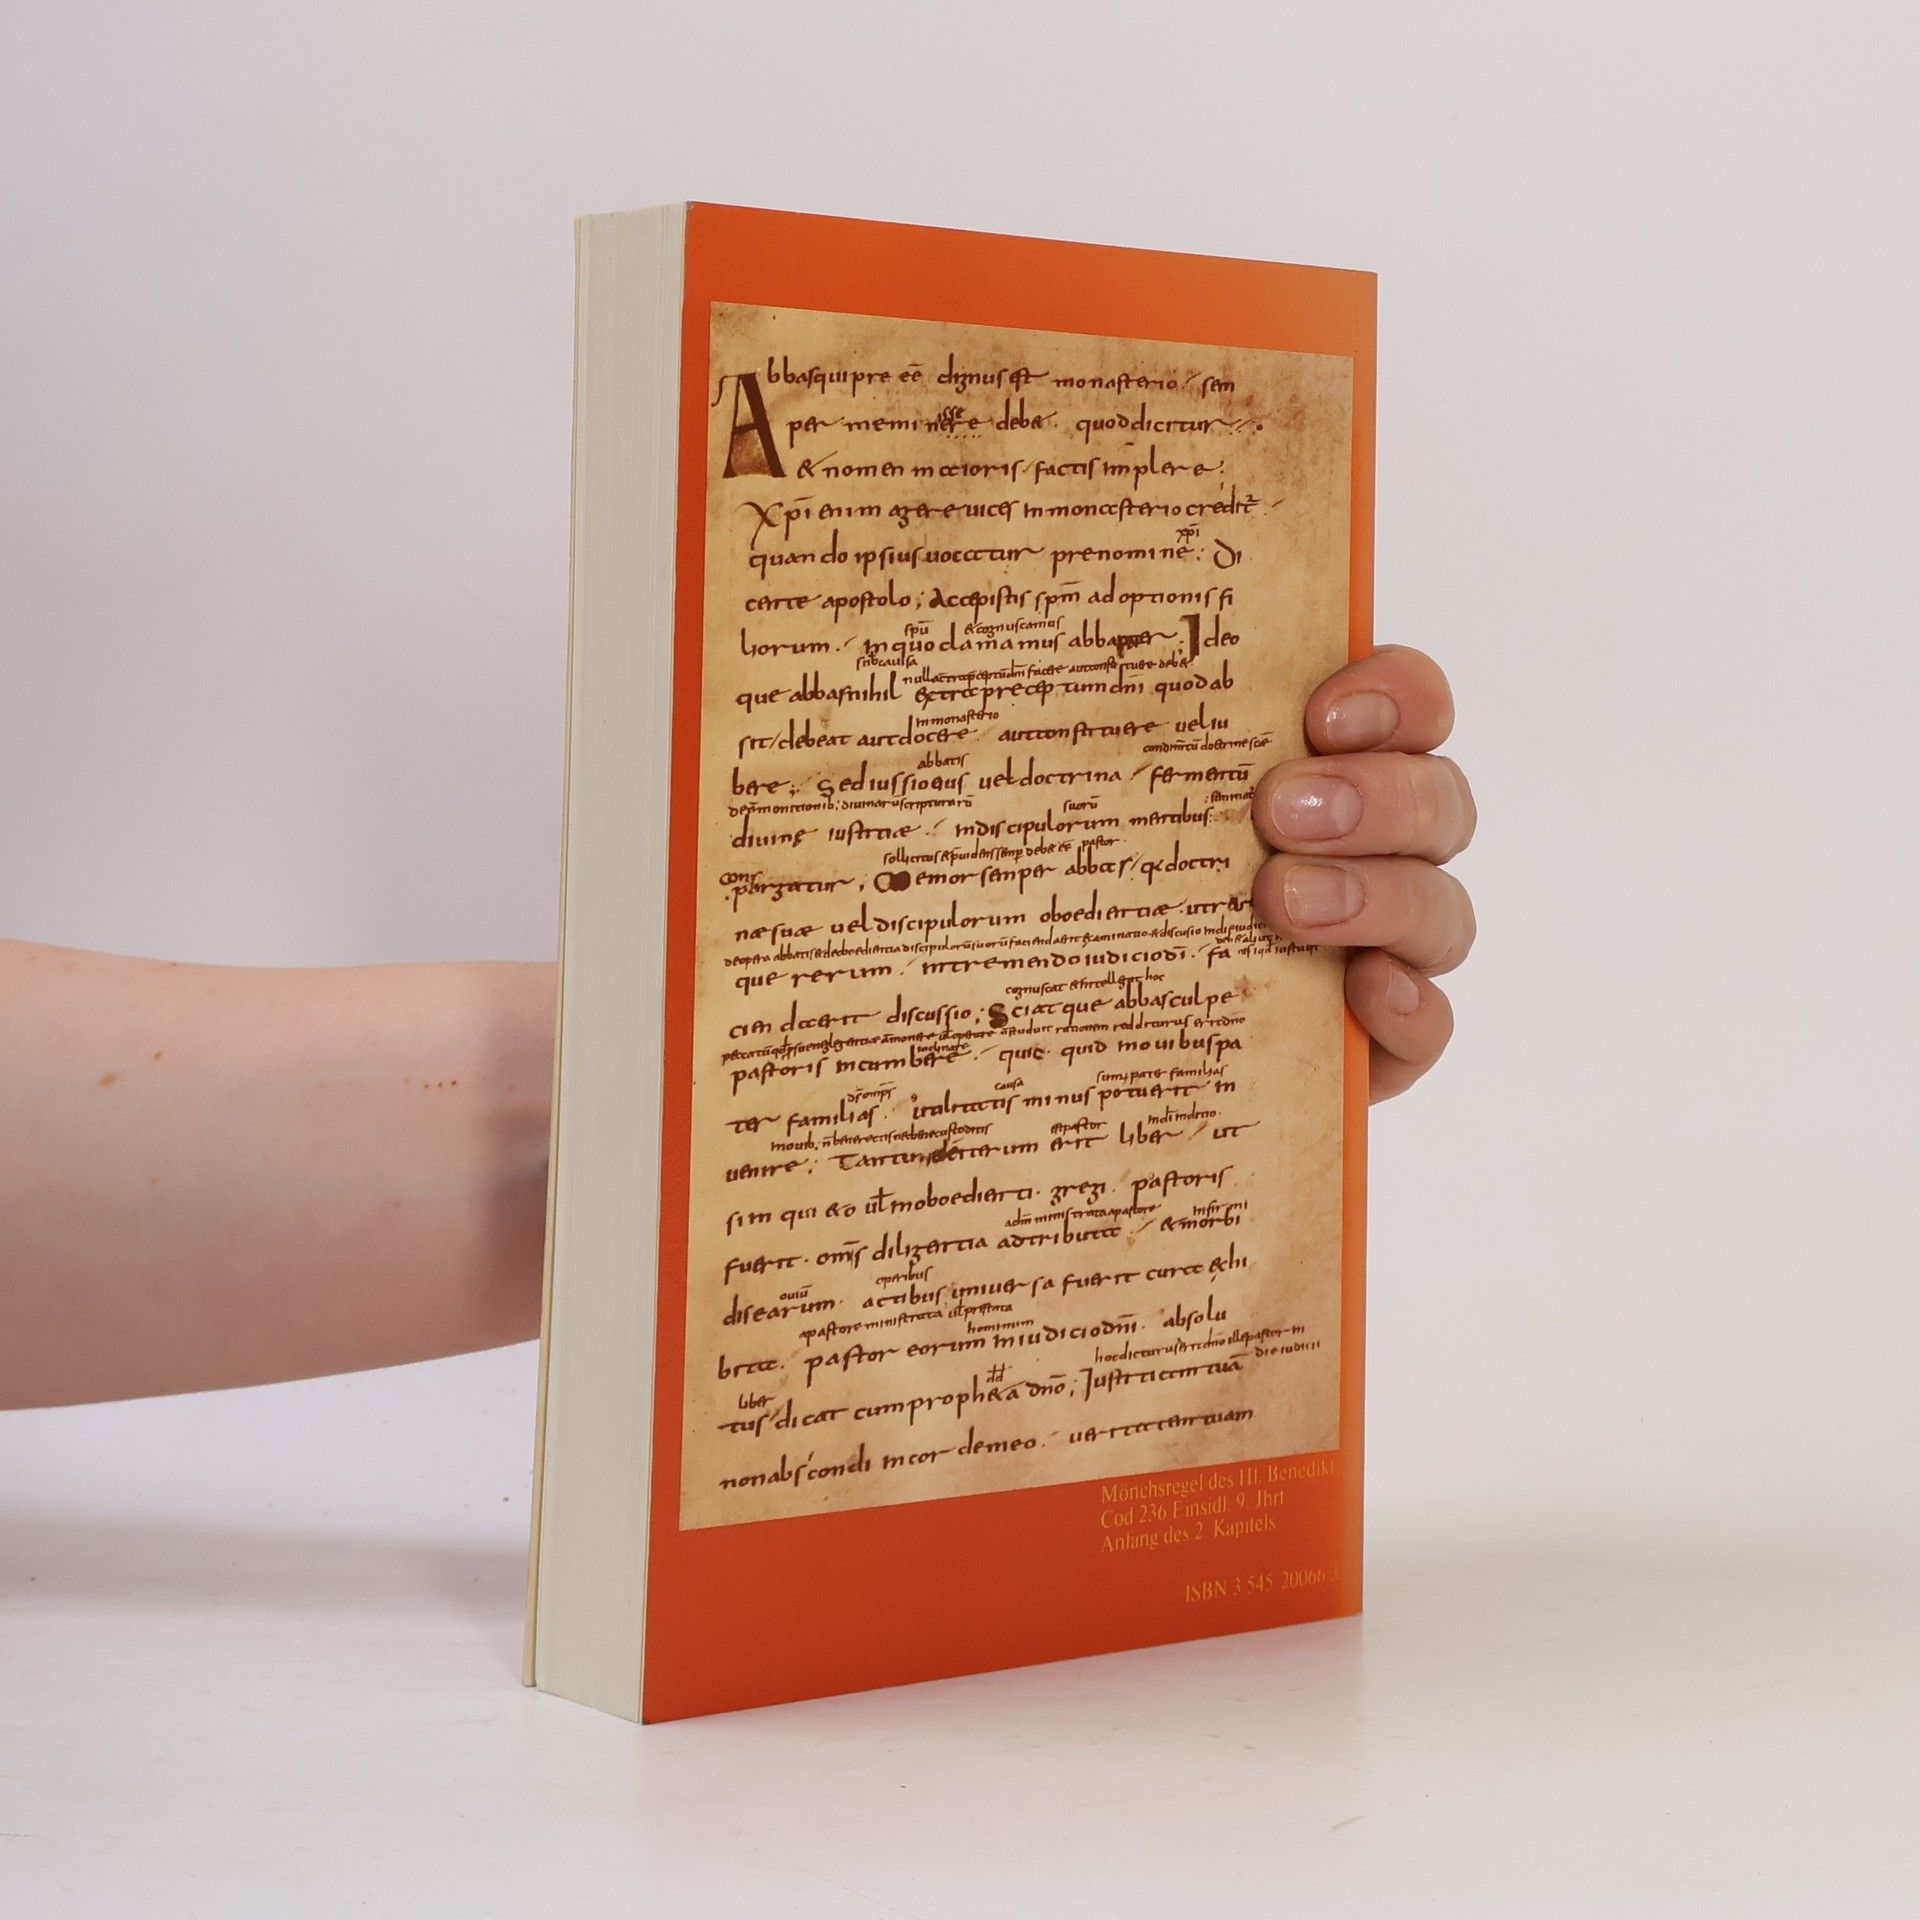 Abbas qui pre eē dignus est monasterio sem
isse
per meminere debet quod dicitur
& nomen maioris factis implere
Xpi enim agere vices in monasterio credit
xpi
quando ipsius vocatur prenomine; Di
cente apostolo; Accepistis spm adoptionis fi
spū & cognuscamus
liorum. In quo clamamus abba pater; Ideo
que abbas nihil extra preceptum dni quod ab
in monasterio
sit debeat aut docere aut constituere vel iu
abbatis
bere; Sed iussio eius vel doctrina fermentū
suorū
divinę iustitiae. In discipulorum mentibus
pastor
conspargatur; Memor semper abbas q& doctri
nae suae vel discipulorum oboedientiae utrar
que rerum. In tremendo iudicio di. fa
cognuscat & intellegat hoc
cienda erit discussio; Sciatque abbas culpe
pastoris incumbere quic quid in ovibus pa
causa summ; pater familias
ter familias utilitatis minus potuerit in
est pastor
venire; Tantum iterum erit liber ut
si in qui&o vl inoboedienti gregi pastoris
infirmi
fuerit omis diligentia adtributa & morbi
oviū operibus
disearum actibus universa fuerit cura exhi
hominum
bita. pastor eorum in iudicio dni absolu
liber
tus dicat cum proph&a dno; Iustitiam tuā
non abscondi in corde meo. veritatem tuam
Mönchsregel des Hl. Benedikt.
Cod 236 Einsidl. 9. Jhrt
Anfang des 2. Kapitels
ISBN 3 545 20066 3